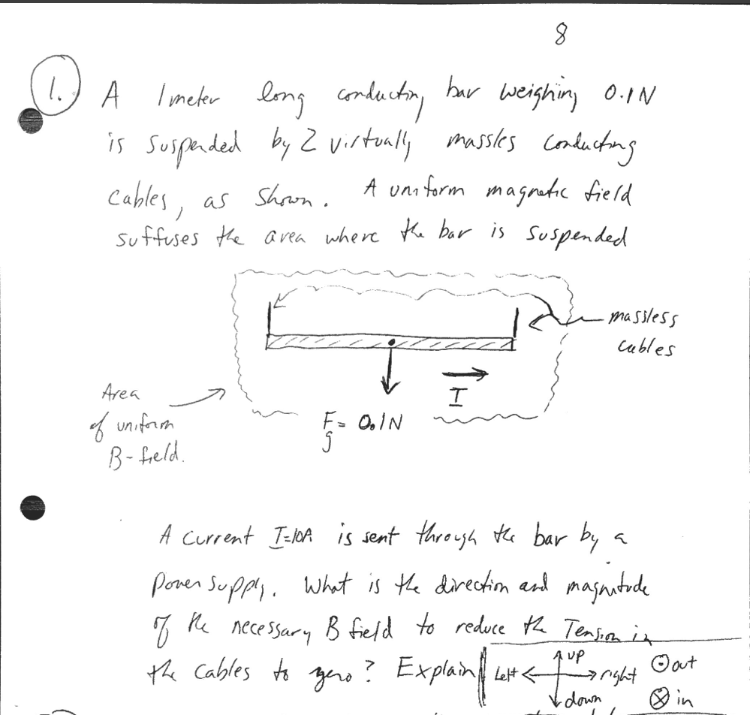 8
1. A 1 meter long conducting bar weighing 0.1N
is suspended by 2 virtually massles conducting
cables, as shown. A uniform magnetic field
suffuses the area where the bar is suspended
massless
cables
I
Area
of uniform
B-field.
Fg = 0.1N
A current I=10A is sent through the bar by a
power supply. What is the direction and magnitude
of the necessary B field to reduce the Tension in
the cables to zero? Explain
up
Left right
down
out
in